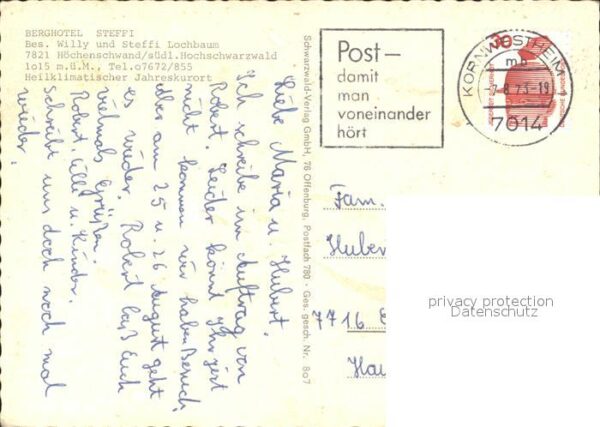 BERGHOTEL STEFFI
Bes. Willy und Steffi Lochbaum
7821 Höchenschwand/südl.Hochschwarzwald
1o15 m.ü.M., Tel.o7672/855
Heilklimatischer Jahreskurort
Liebe Maria u. Hubert.
Ich schreibe im Auftrag von
Robert. Leider könnt Ihr jetzt
nicht kommen wir haben Besuch,
aber am 25 u. 26 August geht
es wieder. Robert läß Euch
vielmals Grüßen
Robert Ulli u. Kinder.
Schreibt uns doch noch mal
wieder.
Schwarzwald-Verlag GmbH, 76 Offenburg, Postfach 780 · Ges. gesch. Nr. 807
Post–
damit
man
voneinander
hört
KORNWESTHEIM
mb
-7.8.73-19
7014
30
Fam.
Huber
7716
Hau
privacy protection
Datenschutz